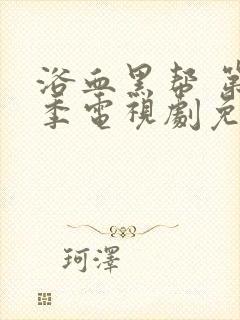 浴血黑帮 第
季電視劇免
珂澤